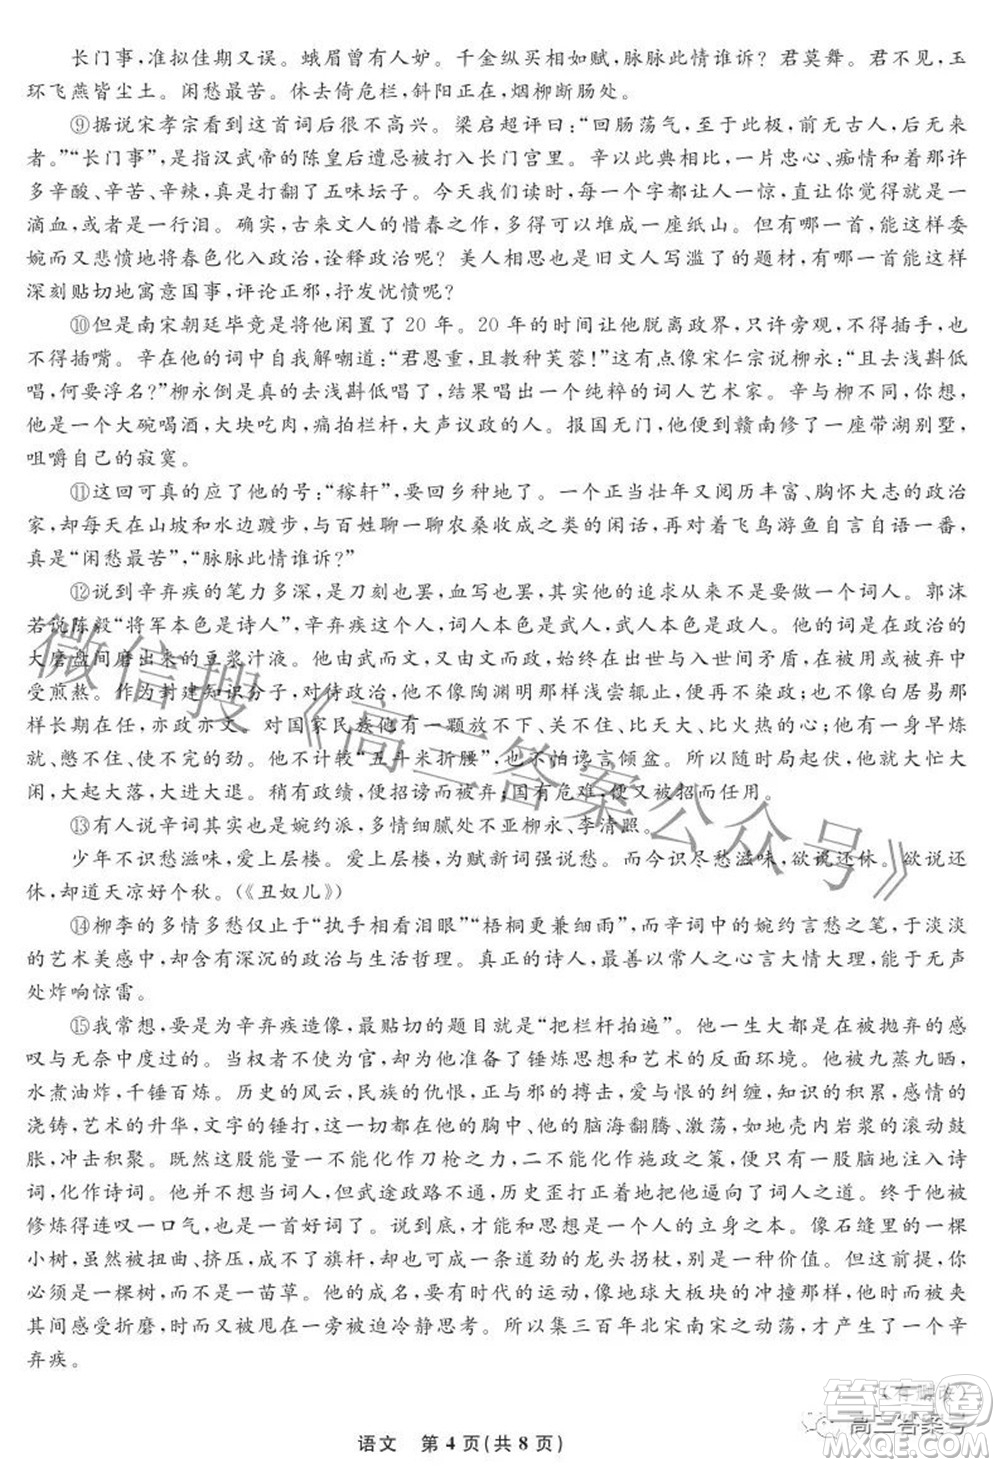 长门事，准拟佳期又误。蛾眉曾有人妒。千金纵买相如赋，脉脉此情谁诉？君莫舞。君不见，玉
环飞燕皆尘土。闲愁最苦。休去倚危栏，斜阳正在，烟柳断肠处。
⑨据说宋孝宗看到这首词后很不高兴。梁启超评曰：“回肠荡气，至于此极，前无古人，后无来
者。”“长门事”，是指汉武帝的陈皇后遭忌被打入长门宫里。辛以此典相比，一片忠心、痴情和着那许
多辛酸、辛苦、辛辣，真是打翻了五味坛子。今天我们读时，每一个字都让人一惊，直让你觉得就是一
滴血，或者是一行泪。确实，古来文人的惜春之作，多得可以堆成一座纸山。但有哪一首，能这样委
婉而又悲愤地将春色化入政治，诠释政治呢？美人相思也是旧文人写滥了的题材，有哪一首能这样
深刻贴切地寓意国事，评论正邪，抒发忧愤呢？
⑩但是南宋朝廷毕竟是将他闲置了 20 年。20 年的时间让他脱离政界，只许旁观，不得插手，也
不得插嘴。辛在他的词中自我解嘲道：“君恩重，且教种芙蓉！”这有点像宋仁宗说柳永：“且去浅斟低
唱，何要浮名？”柳永倒是真的去浅斟低唱了，结果唱出一个纯粹的词人艺术家。辛与柳不同，你想，
他是一个大碗喝酒，大块吃肉，痛拍栏杆，大声议政的人。报国无门，他便到赣南修了一座带湖别墅，
咀嚼自己的寂寞。
⑪这回可真的应了他的号：“稼轩”，要回乡种地了。一个正当壮年又阅历丰富、胸怀大志的政治
家，却每天在山坡和水边踱步，与百姓聊一聊农桑收成之类的闲话，再对着飞鸟游鱼自言自语一番，
真是“闲愁最苦”，“脉脉此情谁诉？”
⑫说到辛弃疾的笔力多深，是刀刻也罢，血写也罢，其实他的追求从来不是要做一个词人。郭沫
若说陈毅“将军本色是诗人”，辛弃疾这个人，词人本色是武人，武人本色是政人。他的词是在政治的
大磨盘间磨出来的豆浆汁液。他由武而文，又由文而政，始终在出世与入世间矛盾，在被用或被弃中
受煎熬。作为封建知识分子，对待政治，他不像陶渊明那样浅尝辄止，便再不染政；也不像白居易那
样长期在任，亦政亦文。对国家民族他有一颗放不下、关不住、比天大、比火热的心；他有一身早炼
就、憋不住、使不完的劲。他不计较“五斗米折腰”，也不怕谗言倾盆。所以随时局起伏，他就大忙大
闲，大起大落，大进大退。稍有政绩，便招谤而被弃；国有危难，便又被招而任用。
⑬有人说辛词其实也是婉约派，多情细腻处不亚柳永、李清照。
少年不识愁滋味，爱上层楼。爱上层楼，为赋新词强说愁。而今识尽愁滋味，欲说还休。欲说还
休，却道天凉好个秋。（《丑奴儿》）
⑭柳李的多情多愁仅止于“执手相看泪眼”“梧桐更兼细雨”，而辛词中的婉约言愁之笔，于淡淡
的艺术美感中，却含有深沉的政治与生活哲理。真正的诗人，最善以常人之心言大情大理，能于无声
处炸响惊雷。
⑮我常想，要是为辛弃疾造像，最贴切的题目就是“把栏杆拍遍”。他一生大都是在被抛弃的感
叹与无奈中度过的。当权者不使为官，却为他准备了锤炼思想和艺术的反面环境。他被九蒸九晒，
水煮油炸，千锤百炼。历史的风云，民族的仇恨，正与邪的搏击，爱与恨的纠缠，知识的积累，感情的
浇铸，艺术的升华，文字的锤打，这一切都在他的胸中、他的脑海翻腾、激荡，如地壳内岩浆的滚动鼓
胀，冲击积聚。既然这股能量一不能化作刀枪之力，二不能化作施政之策，便只有一股脑地注入诗
词，化作诗词。他并不想当词人，但武途政路不通，历史歪打正着地把他逼向了词人之道。终于他被
修炼得连叹一口气，也是一首好词了。说到底，才能和思想是一个人的立身之本。像石缝里的一棵
小树，虽然被扭曲、挤压，成不了旗杆，却可成一条遒劲的龙头拐杖，别是一种价值。但这前提，你必
须是一棵树，而不是一苗草。他的成名，要感谢时代的运动，像地球大板块的冲撞那样，他时而被夹
其间感受折磨，时而又被甩在一旁被迫冷静思考。所以集三百年北宋南宋之动荡，才产生了一个辛
弃疾。
（有删改）
语文　第 4 页（共 8 页）
微信搜《高三答案公众号》
高三答案号
答案圈
MXQE.COM